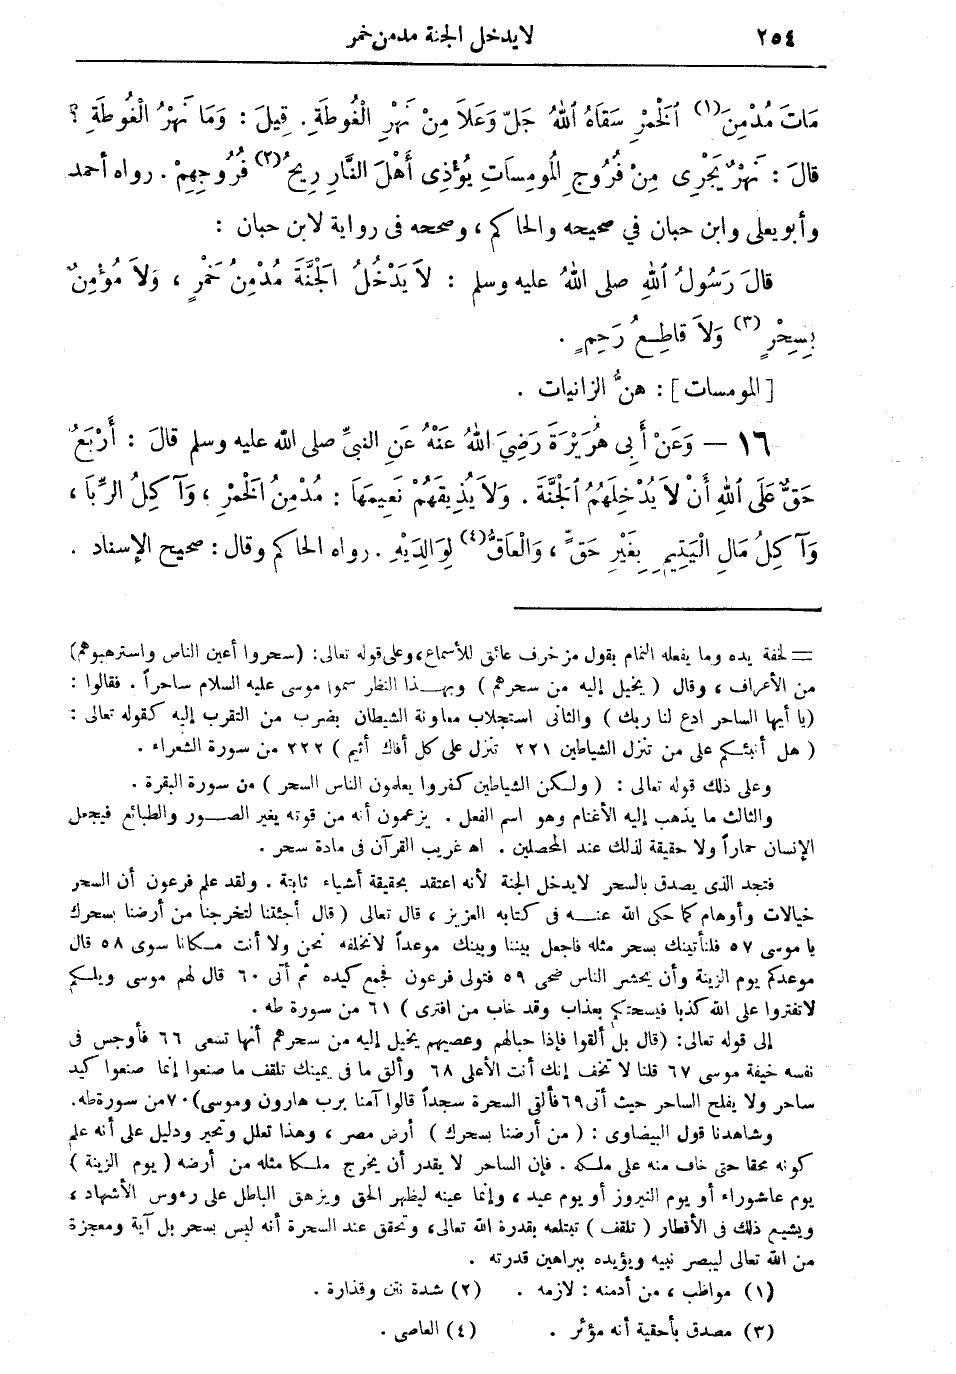 ٢٥٤ لا يدخل الجنة مدمن خمر
مَاتَ مُدْمِنَ(١) الْخَمْرِ سَقَاهُ اللهُ جَلَّ وَعَلاَ مِنْ نَهْرِ الْغُوطَةِ. قِيلَ: وَمَا نَهْرُ الْغُوطَةِ؟
قَالَ: نَهْرٌ يَجْرِى مِنْ فُرُوجِ الْمُومِسَاتِ يُؤْذِى أَهْلَ النَّارِ رِيحُ(٢) فُرُوجِهِمْ. رواه أحمد
وأبو يعلى وابن حبان في صحيحه والحاكم، وصححه فى رواية لابن حبان :
قَالَ رَسُولُ اللهِ صلى اللهُ عليه وسلم : لاَ يَدْخُلُ الْجَنَّةَ مُدْمِنُ خَمْرٍ ، وَلاَ مُؤْمِنٌ
بِسِحْرٍ(٣) وَلاَ قَاطِعُ رَحِمٍ .
[المومسات] : هنَّ الزانيات .
١٦ — وَعَنْ أَبِى هُرَيْرَةَ رَضِيَ اللهُ عَنْهُ عَنِ النبىِّ صلى الله عليه وسلم قَالَ : أَرْبَعٌ
حَقٌّ عَلَى اللهِ أَنْ لاَ يُدْخِلَهُمُ الْجَنَّةَ . وَلاَ يُذِيقَهُمْ نَعِيمَهَا : مُدْمِنُ الْخَمْرِ ، وَآكِلُ الرِّبَا ،
وَآكِلُ مَالِ الْيَتِيمِ بِغَيْرِ حَقٍّ ، وَالْعَاقُّ(٤) لِوَالِدَيْهِ . رواه الحاكم وقال : صحيح الإسناد .
= لخفة يده وما يفعله النمام بقول مزخرف عائق للأسماع، وعلى قوله تعالى: (سحروا أعين الناس واسترهبوهم)
من الأعراف ، وقال ( يخيل إليه من سحرهم ) وبهـذا النظر سموا موسى عليه السلام ساحراً . فقالوا :
(يا أيها الساحر ادع لنا ربك ) والثانى استجلاب معاونة الشيطان بضرب من التقرب إليه كقوله تعالى :
( هل أنبئكم على من تنزل الشياطين ٢٢١ تنزل على كل أفاك أثيم ) ٢٢٢ من سورة الشعراء .
وعلى ذلك قوله تعالى : ( ولكن الشياطين كفروا يعلمون الناس السحر ) من سورة البقرة .
والثالث ما يذهب إليه الأغنام وهو اسم الفعل . يزعمون أنه من قوته يغير الصـور والطبائع فيجعل
الإنسان حماراً ولا حقيقة لذلك عند المحصلين . اه غريب القرآن فى مادة سحر .
فتجد الذى يصدق بالسحر لا يدخل الجنة لأنه اعتقد بحقيقة أشياء ثابتة . ولقد علم فرعون أن السحر
خيالات وأوهام كما حكى الله عنـه فى كتابه العزيز ، قال تعالى ( قال أجئتنا لتخرجنا من أرضنا بسحرك
يا موسى ٥٧ فلنأتينك بسحر مثله فاجعل بيننا وبينك موعداً لانخلفه نحن ولا أنت مكانا سوى ٥٨ قال
موعدكم يوم الزينة وأن يحشر الناس ضحى ٥٩ فتولى فرعون فجمع كيده ثم أتى ٦٠ قال لهم موسى ويلكم
لاتفتروا على الله كذبا فيسحتكم بعذاب وقد خاب من افترى ) ٦١ من سورة طه .
إلى قوله تعالى: (قال بل ألقوا فإذا حبالهم وعصيهم يخيل إليه من سحرهم أنها تسعى ٦٦ فأوجس فى
نفسه خيفة موسى ٦٧ قلنا لا تخف إنك أنت الأعلى ٦٨ وألق ما فى يمينك تلقف ما صنعوا إنما صنعوا كيد
ساحر ولا يفلح الساحر حيث أتى٦٩فألقى السحرة سجداً قالوا آمنا برب هارون وموسى)٧٠من سورةطه.
وشاهدنا قول البيضاوى : ( من أرضنا بسحرك ) أرض مصر ، وهذا تعلل وتحير ودليل على أنه علم
كونه محقا حتى خاف منه على ملكه . فإن الساحر لا يقدر أن يخرج ملكا مثله من أرضه ( يوم الزينة )
يوم عاشوراء أو يوم النيروز أو يوم عيد ، وإنما عينه ليظهر الحق ويزهق الباطل على رءوس الأشهاد ،
ويشيع ذلك فى الأقطار ( تلقف ) تبتلعه بقدرة الله تعالى، وتحقق عند السحرة أنه ليس بسحر بل آية ومعجزة
من الله تعالى ليبصر نبيه ويؤيده ببراهين قدرته .
(١) مواظب ، من أدمنه : لازمه . (٢) شدة نتن وقذارة .
(٣) مصدق بأحقية أنه مؤثر . (٤) العاصى .